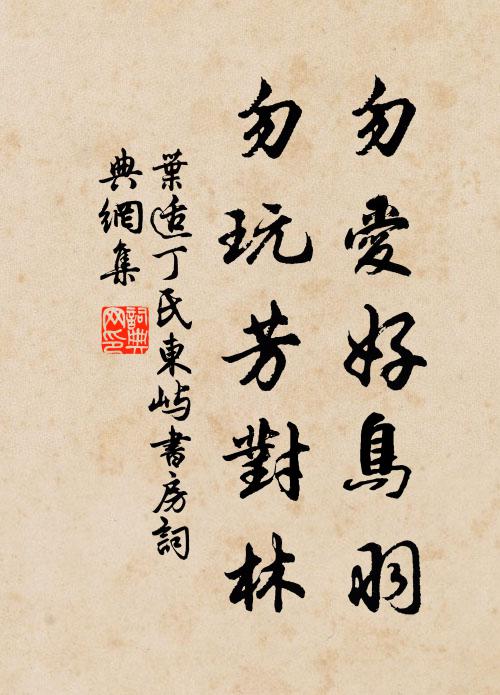 勿愛好鳥羽
勿玩芳對林
葉適丁氏東嶼書房詞
典網集
詞典
网印